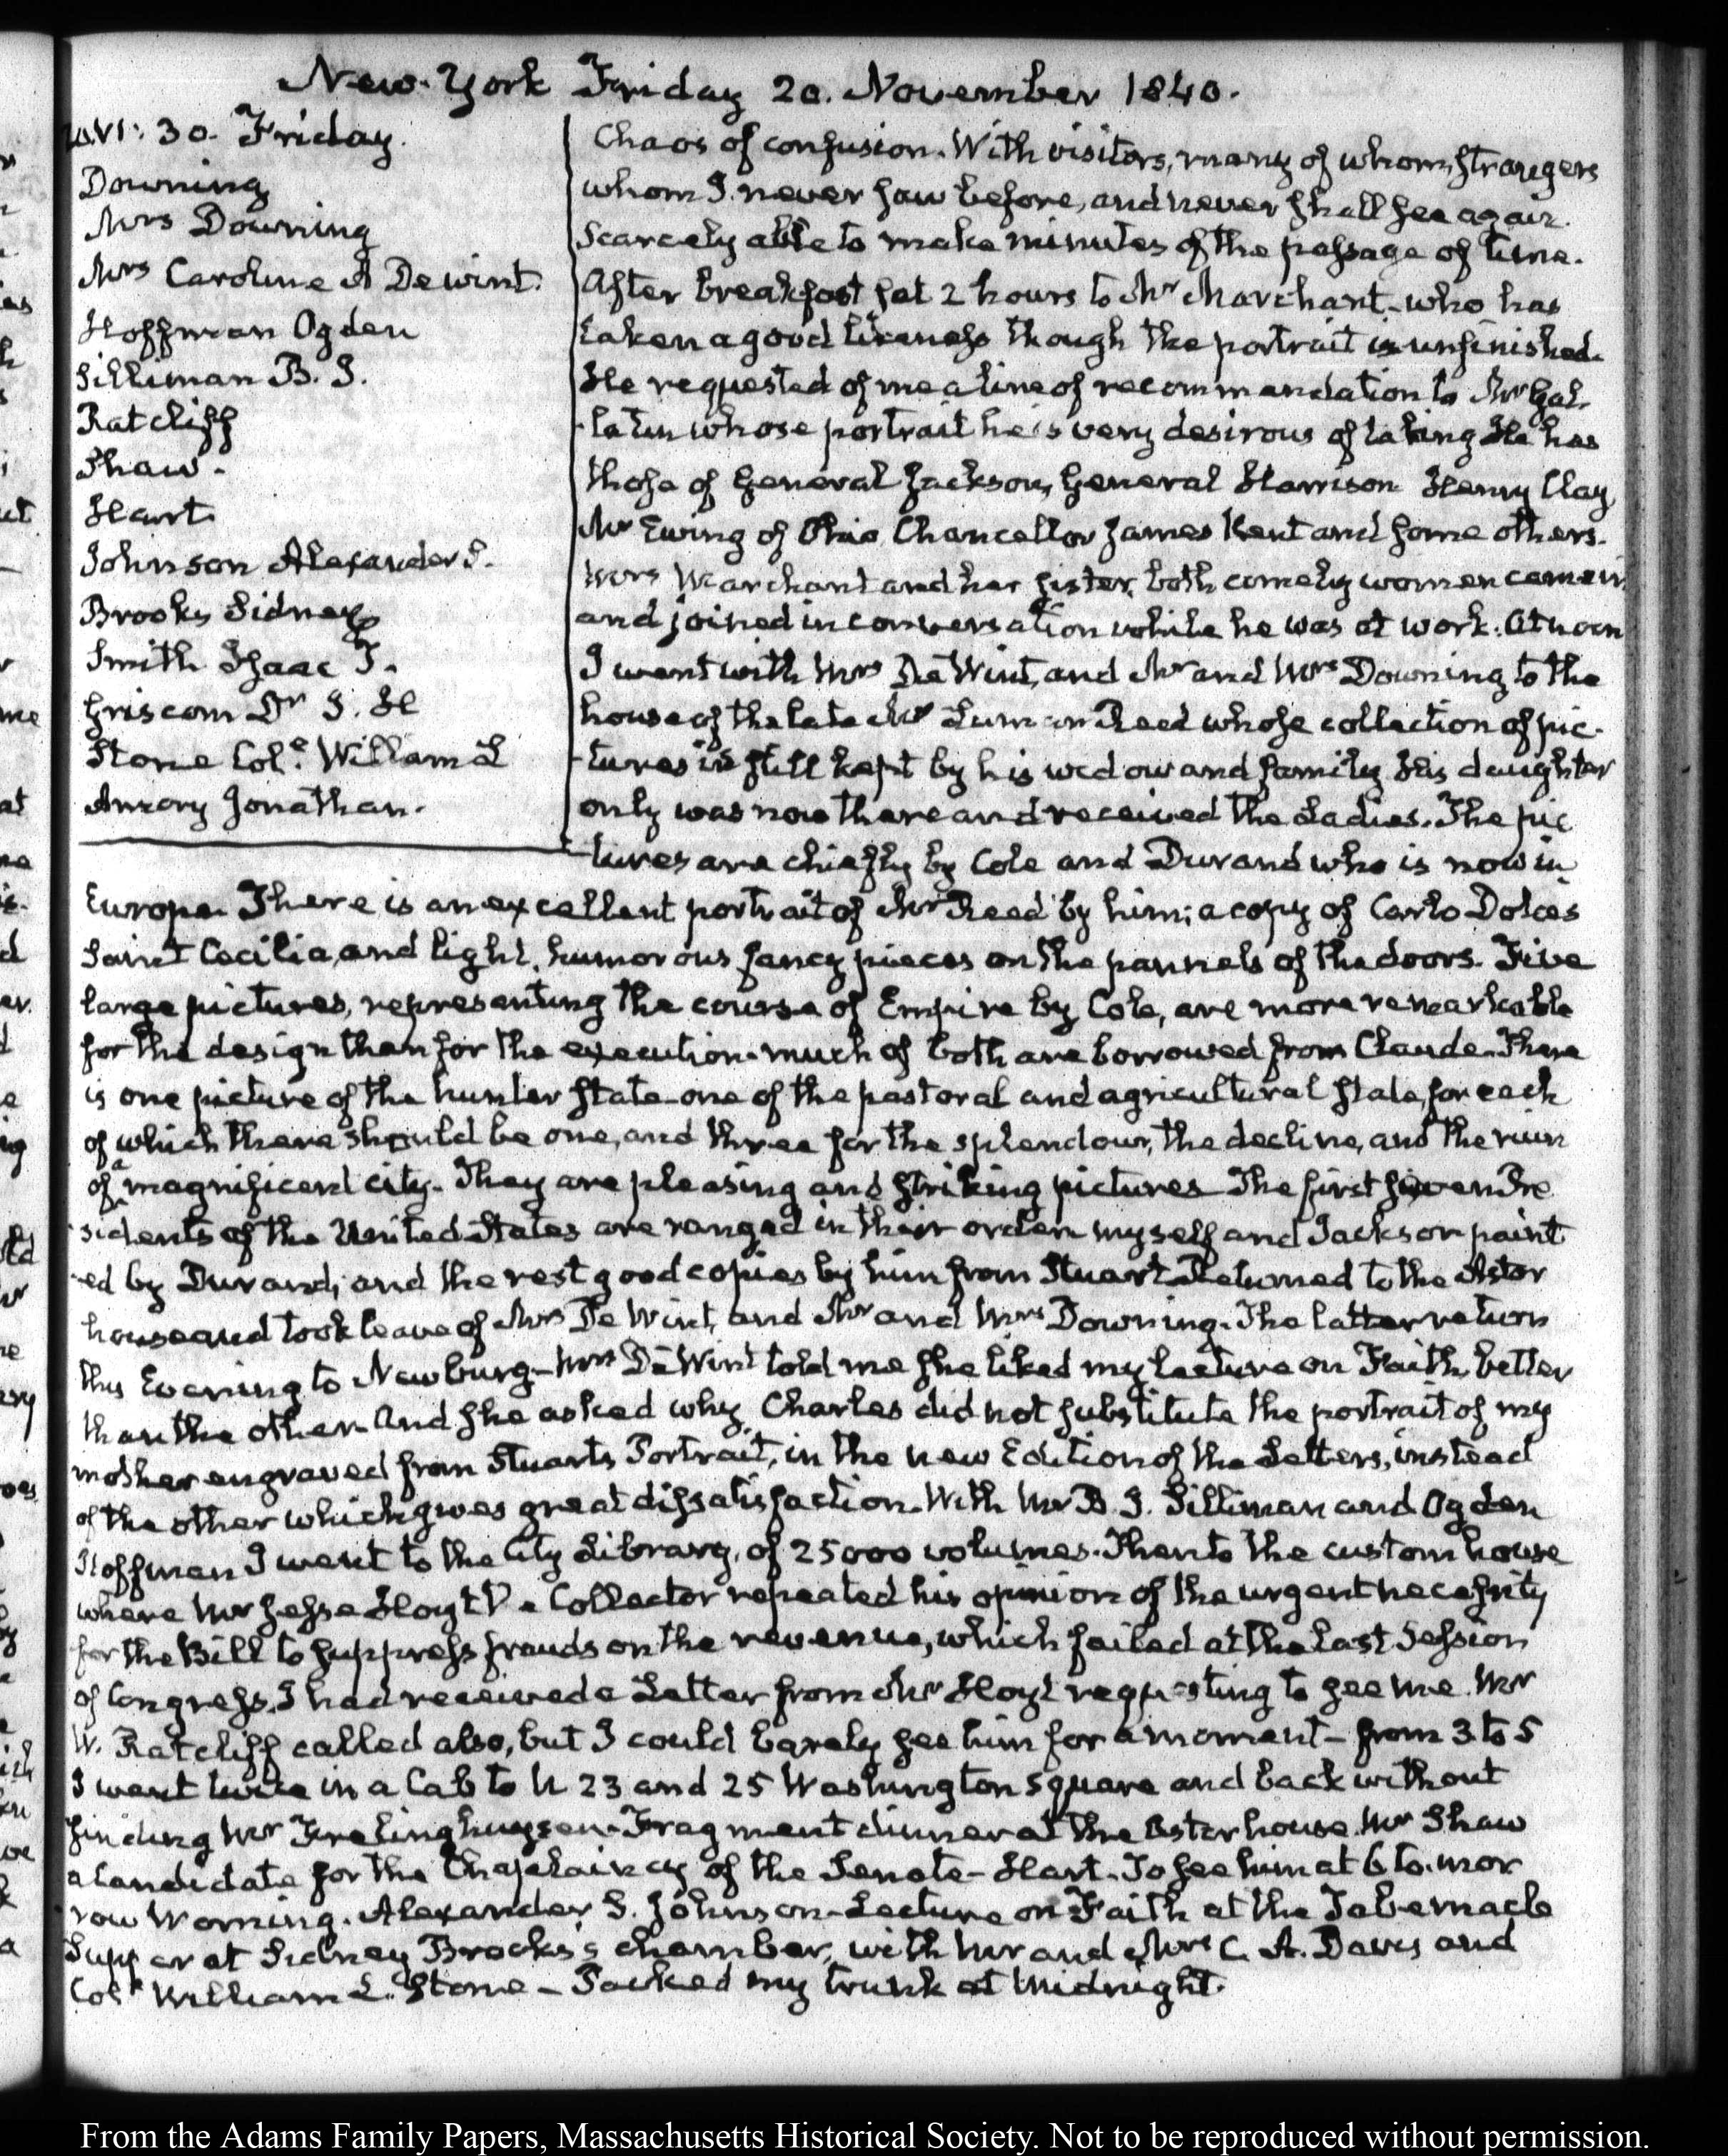 New-York Friday 20. November 1840.
20. VI: 30. Friday.
Downing
Mrs Downing
Mrs Caroline A De wint.
Hoffman Ogden
Silliman B. I.
Ratcliff
Shaw.
Hart
Johnson Alexander S.
Brooks Sidney
Smith Isaac T.
Griscom Dr J. H
Stone Coll. William L
Amory Jonathan.
Chaos of confusion. With visitors, many of whom, strangers
whom I never saw before, and never shall see again.
Scarcely able to make minutes of the passage of time.
After breakfast sat 2 hours to Mr Marchant, who has
taken a good likeness though the portrait is unfinished.
He requested of me a line of recommendation to Mr Gal-
-latin whose portrait he is very desirous of taking He has
those of General Jackson, General Harrison Henry Clay,
Mr Ewing of Ohio Chancellor James Kent and some others.
Mrs Marchant and her sister, both comely women came in
and joined in conversation while he was at work. At noon
I went with Mrs De Wint, and Mr and Mrs Downing to the
house of the late Mr Luman Reed whose collection of pic-
-tures is still kept by his widow and family His daughter
only was now there and received the Ladies. The pic
-tures are chiefly by Cole and Durand who is now in
Europe. There is an excellent portrait of Mr Reed by him; a copy of Carlo Dolces
Saint Cecilia, and light, humorous fancy pieces on the pannels of the doors. Five
large pictures, representing the course of Empire by Cole, are more remarkable
for the design than for the execution. much of both are borrowed from Claude. There
is one picture of the hunter state one of the pastoral and agricultural state, for each
of which there should be one, and three for the splendour, the decline, and the ruin
of a magnificent city. They are pleasing and striking pictures The first seven Pre
sidents of the United States are ranged in their order, myself and Jackson paint
-ed by Durand; and the rest good copies by him from Stuart. Returned to the Astor
house and took leave of Mrs De Wint, and Mr and Mrs Downing. The latter return
this Evening to Newburg - Mrs De Wint told me she liked my lecture on Faith, better
than the other. And she asked why Charles did not substitute the portrait of my
mother engraved from Stuarts Portrait, in the new Edition of the Letters, instead
of the other which gives great dissatisfaction. With Mr B. I. Silliman and Ogden
Hoffman I went to the City Library, of 25000 volumes. Then to the custom house
where Mr Jesse Hoyt Collector repeated his opinion of the urgent necessity
for the Bill to suppress frauds on the revenue, which failed at the last Session
of Congress. I had received a Letter from Mr Hoyt requesting to see me. Mr
W. Ratcliff called also, but I could barely see him for a moment - from 3 to 5
I went twice in a Cab to N 23 and 25 Washington Square and back without
finding Mr Frelinghuysen. Fragment dinner at the Astor house. Mr Shaw
a Candidate for the Chaplaincy of the Senate - Hart. To see him at 6 to-mor
row Morning. Alexander S. Johnson - Lecture on Faith at the Tabernacle
Supper at Sidney Brooks's chamber, with Mr and Mrs C. A. Davis and
Coll William L. Stone - Packed my trunk at Midnight.
From the Adams Family Papers, Massachusetts Historical Society. Not to be reproduced without permission.